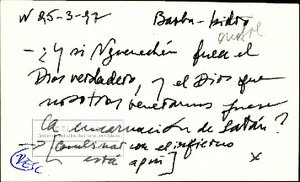 N 25-3-97 Barba-Isidro
onofre
- ¿Y si Nguenechén fuera el
Dios verdadero, y el Dios que
nosotros veneramos fuese
la encarnación de Satán?
→ [ con el infierno
está aquí ] x
(VESC)